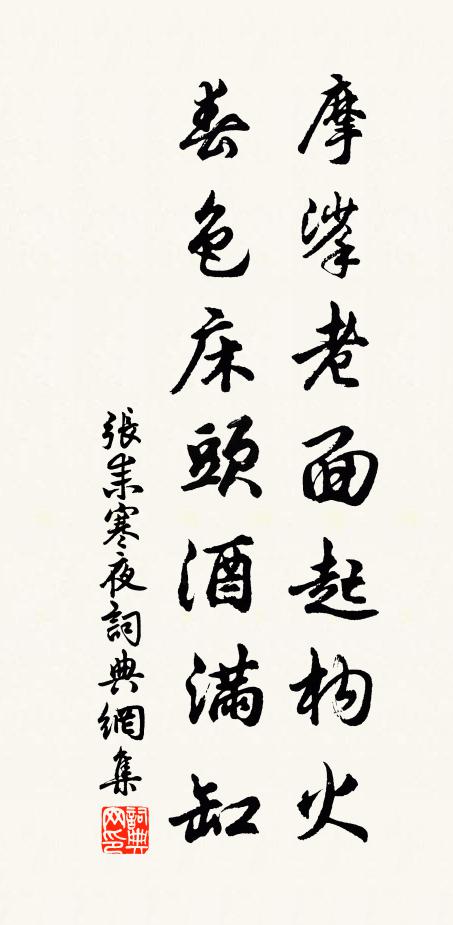 摩挲老面起构火
春色床頭酒滿缸
張耒寒夜詞典網集
詞典网印